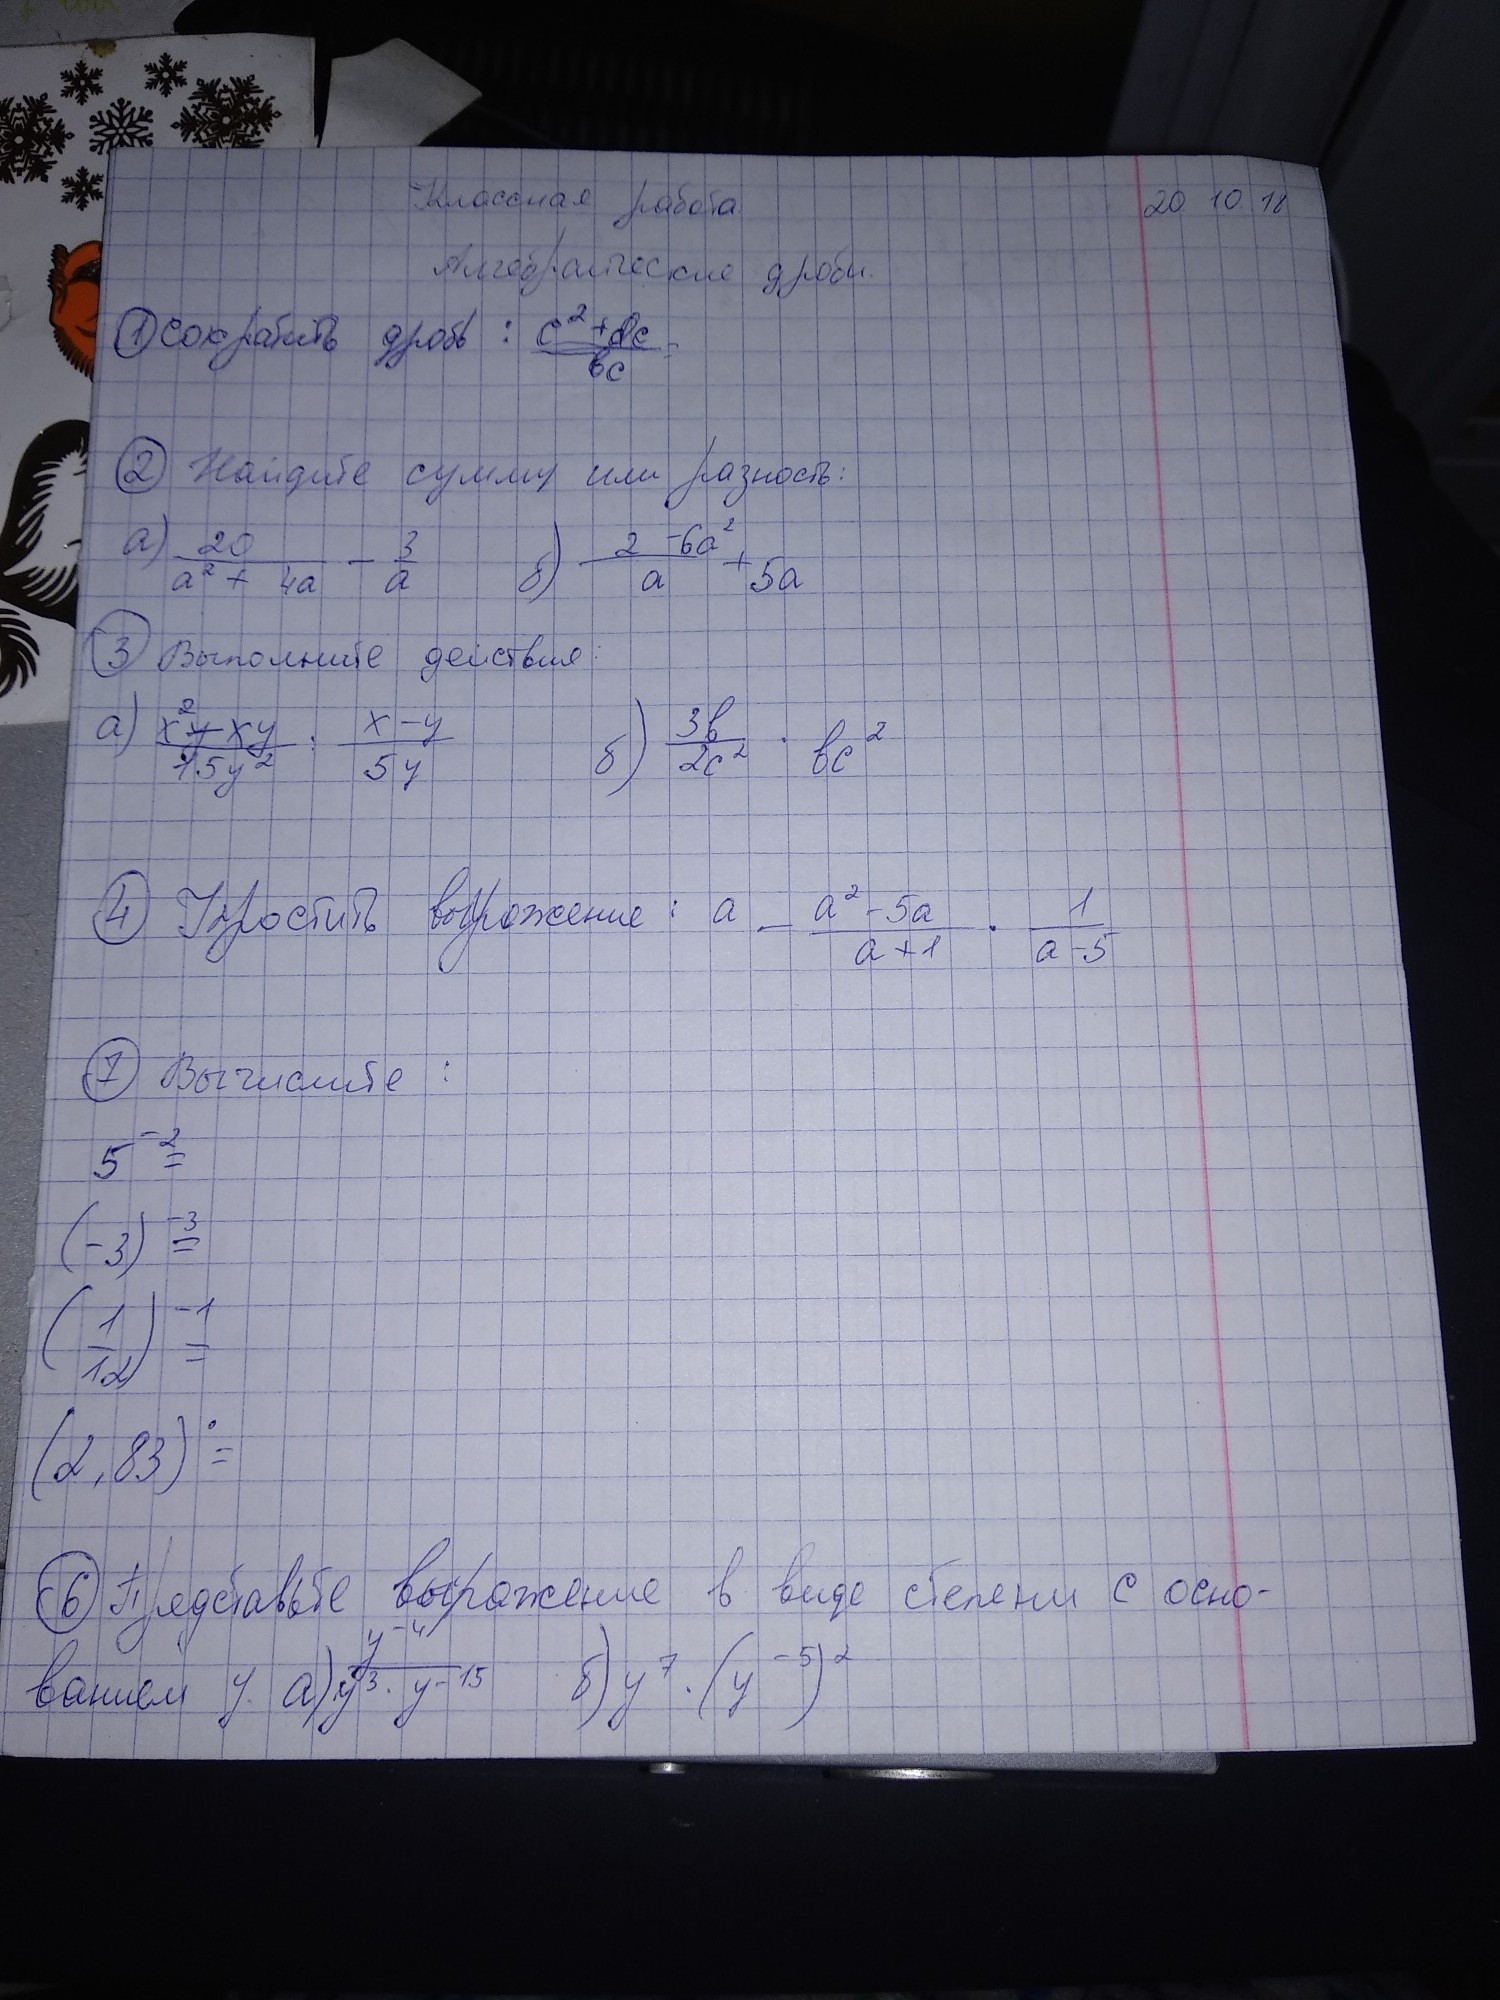 Классная работа 20 10 18
Алгебраические дроби.
① Сократить дробь: (c² + dc)/(bc) =
② Найдите сумму или разность:
а) 20/(a² + 4a) - 3/a б) (2 - 6a²)/a + 5a
③ Выполните действия:
а) (x² - xy)/(15y²) : (x - y)/(5y) б) 3b/(2c²) · bc²
④ Упростить выражение: a - (a² - 5a)/(a + 1) · 1/(a - 5)
⑦ Вычислите:
5⁻² =
(-3)⁻³ =
(1/12)⁻¹ =
(2,83)⁰ =
⑥ Представьте выражение в виде степени с осно-
ванием y. а) y⁻⁴/(y³ · y⁻¹⁵) б) y⁷ · (y⁻⁵)²